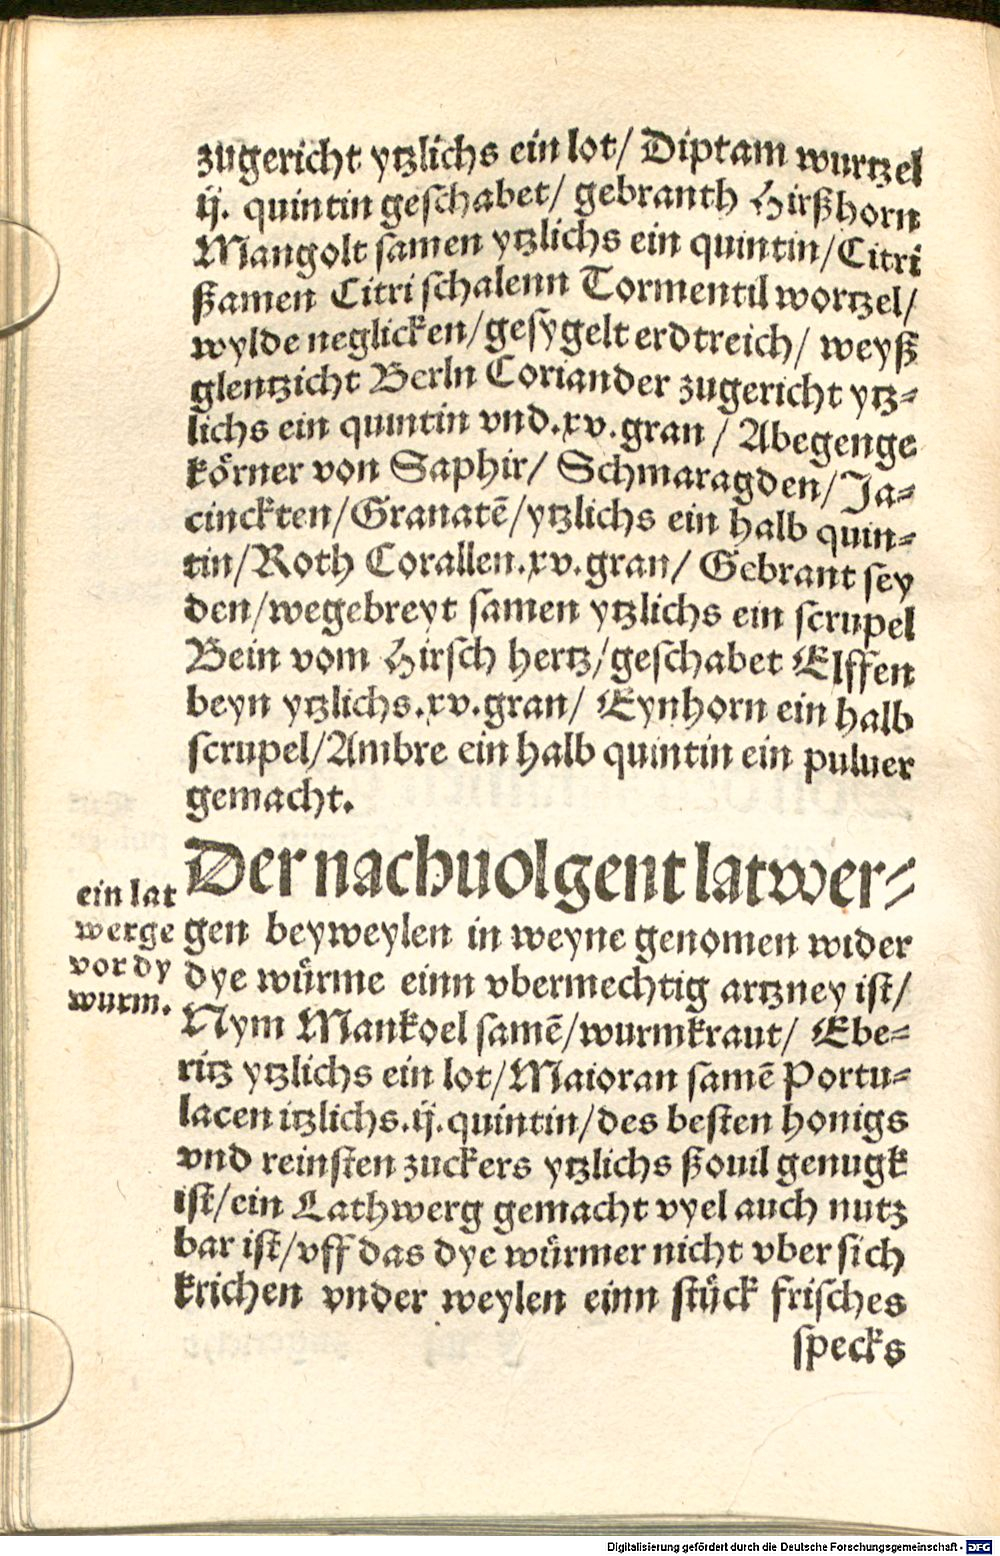 zugericht ytzlichs ein lot/ Diptam wurtzel
ij. quintin geschabet/ gebranth Hirßhorn
Mangolt samen ytzlichs ein quintin/ Citri
ßamen Citri schalenn Tormentil wortzel/
wylde neglicken/ gesygelt erdtreich/ weyß
glentzicht Berln Coriander zugericht ytz-
lichs ein quintin vnd .xv. gran / Abegenge
körner von Saphir/ Schmaragden/ Ja-
cinckten/ Granatē/ ytzlichs ein halb quin-
tin/ Roth Corallen .xv. gran/ Gebrant sey
den/ wegebreyt samen ytzlichs ein scrupel
Bein vom Hirsch hertz/ geschabet Elffen
beyn ytzlichs .xv. gran/ Eynhorn ein halb
scrupel/ Ambre ein halb quintin ein puluer
gemacht.
Der nachuolgent latwer-
gen beyweylen in weyne genomen wider
dye würme einn vbermechtig artzney ist/
Nym Mankoel samē/ wurmkraut/ Ebe-
ritz ytzlichs ein lot/ Maioran samē Portu-
lacen itzlichs .ij. quintin/ des besten honigs
vnd reinsten zuckers ytzlichs ßouil genugk
ist/ ein Lathwerg gemacht vyel auch nutz
bar ist/ vff das dye würmer nicht vber sich
krichen vnder weylen einn stück frisches
specks
ein lat
werge
vor dy
wurm.
Digitalisierung gefördert durch die Deutsche Forschungsgemeinschaft - DFG